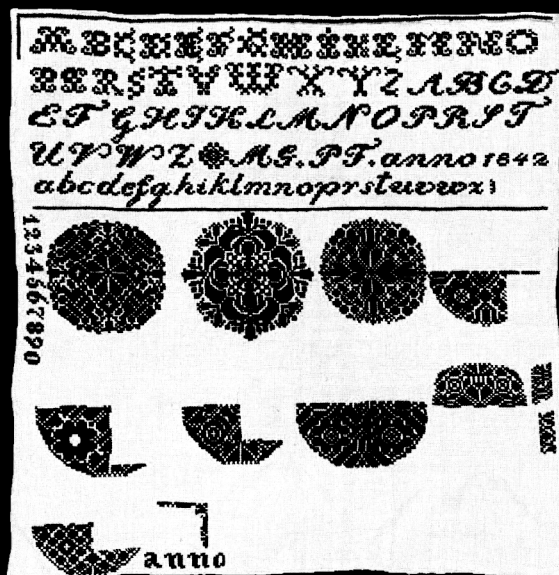 ABCDEFGHIKLMNO
PRSTVWXYZ ABCD
EFGHIKLMNOPRST
UVWZ MG. PF. anno 1842
abcdefghiklmnoprstuvwx
1234567890
anno